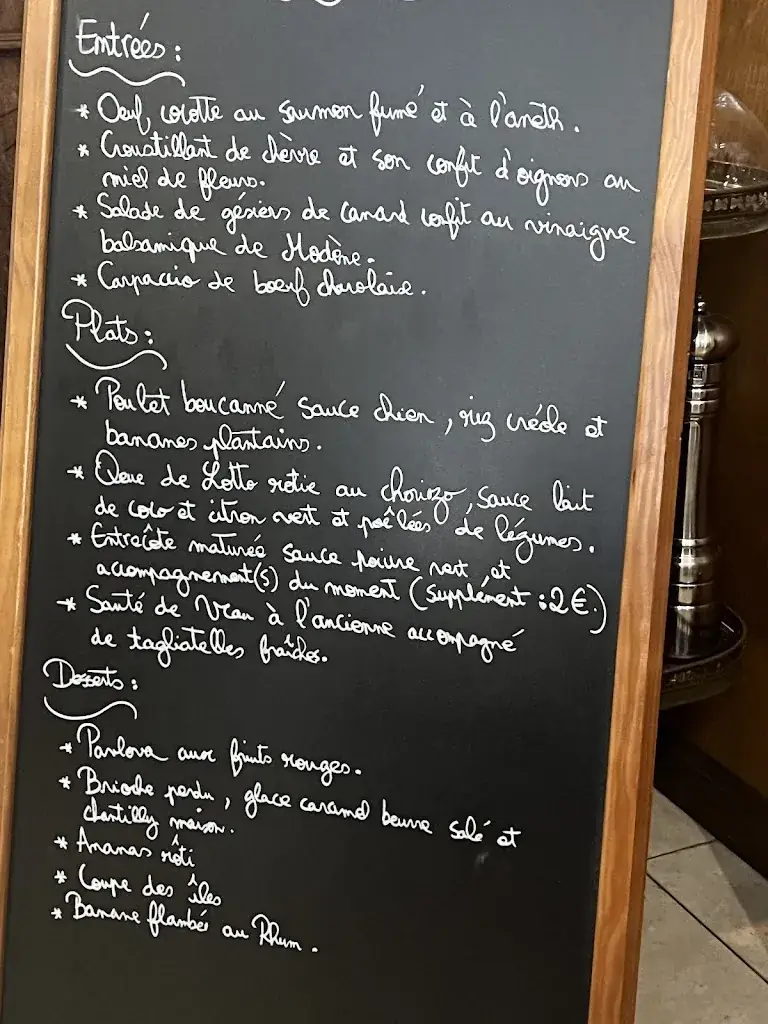 Entrées :
* Oeuf cocotte au saumon fumé et à l'aneth.
* Croustillant de chèvre et son confit d'oignons au
miel de fleurs.
* Salade de gésiers de canard confit au vinaigre
balsamique de Modène.
* Carpaccio de boeuf charolaise.
Plats :
* Poulet boucanné sauce chien, riz créole et
bananes plantains.
* Queue de Lotte rôtie au chorizo, sauce lait
de coco et citron vert et poêlées de légumes.
* Entrecôte maturée sauce poivre vert et
accompagnement(s) du moment (supplément : 2€.)
* Sauté de Veau à l'ancienne accompagné
de tagliatelles fraîches.
Desserts :
* Pavlova aux fruits rouges.
* Brioche perdu, glace caramel beurre salé et
chantilly maison.
* Ananas rôti
* Coupe des îles
* Banane flambée au Rhum.